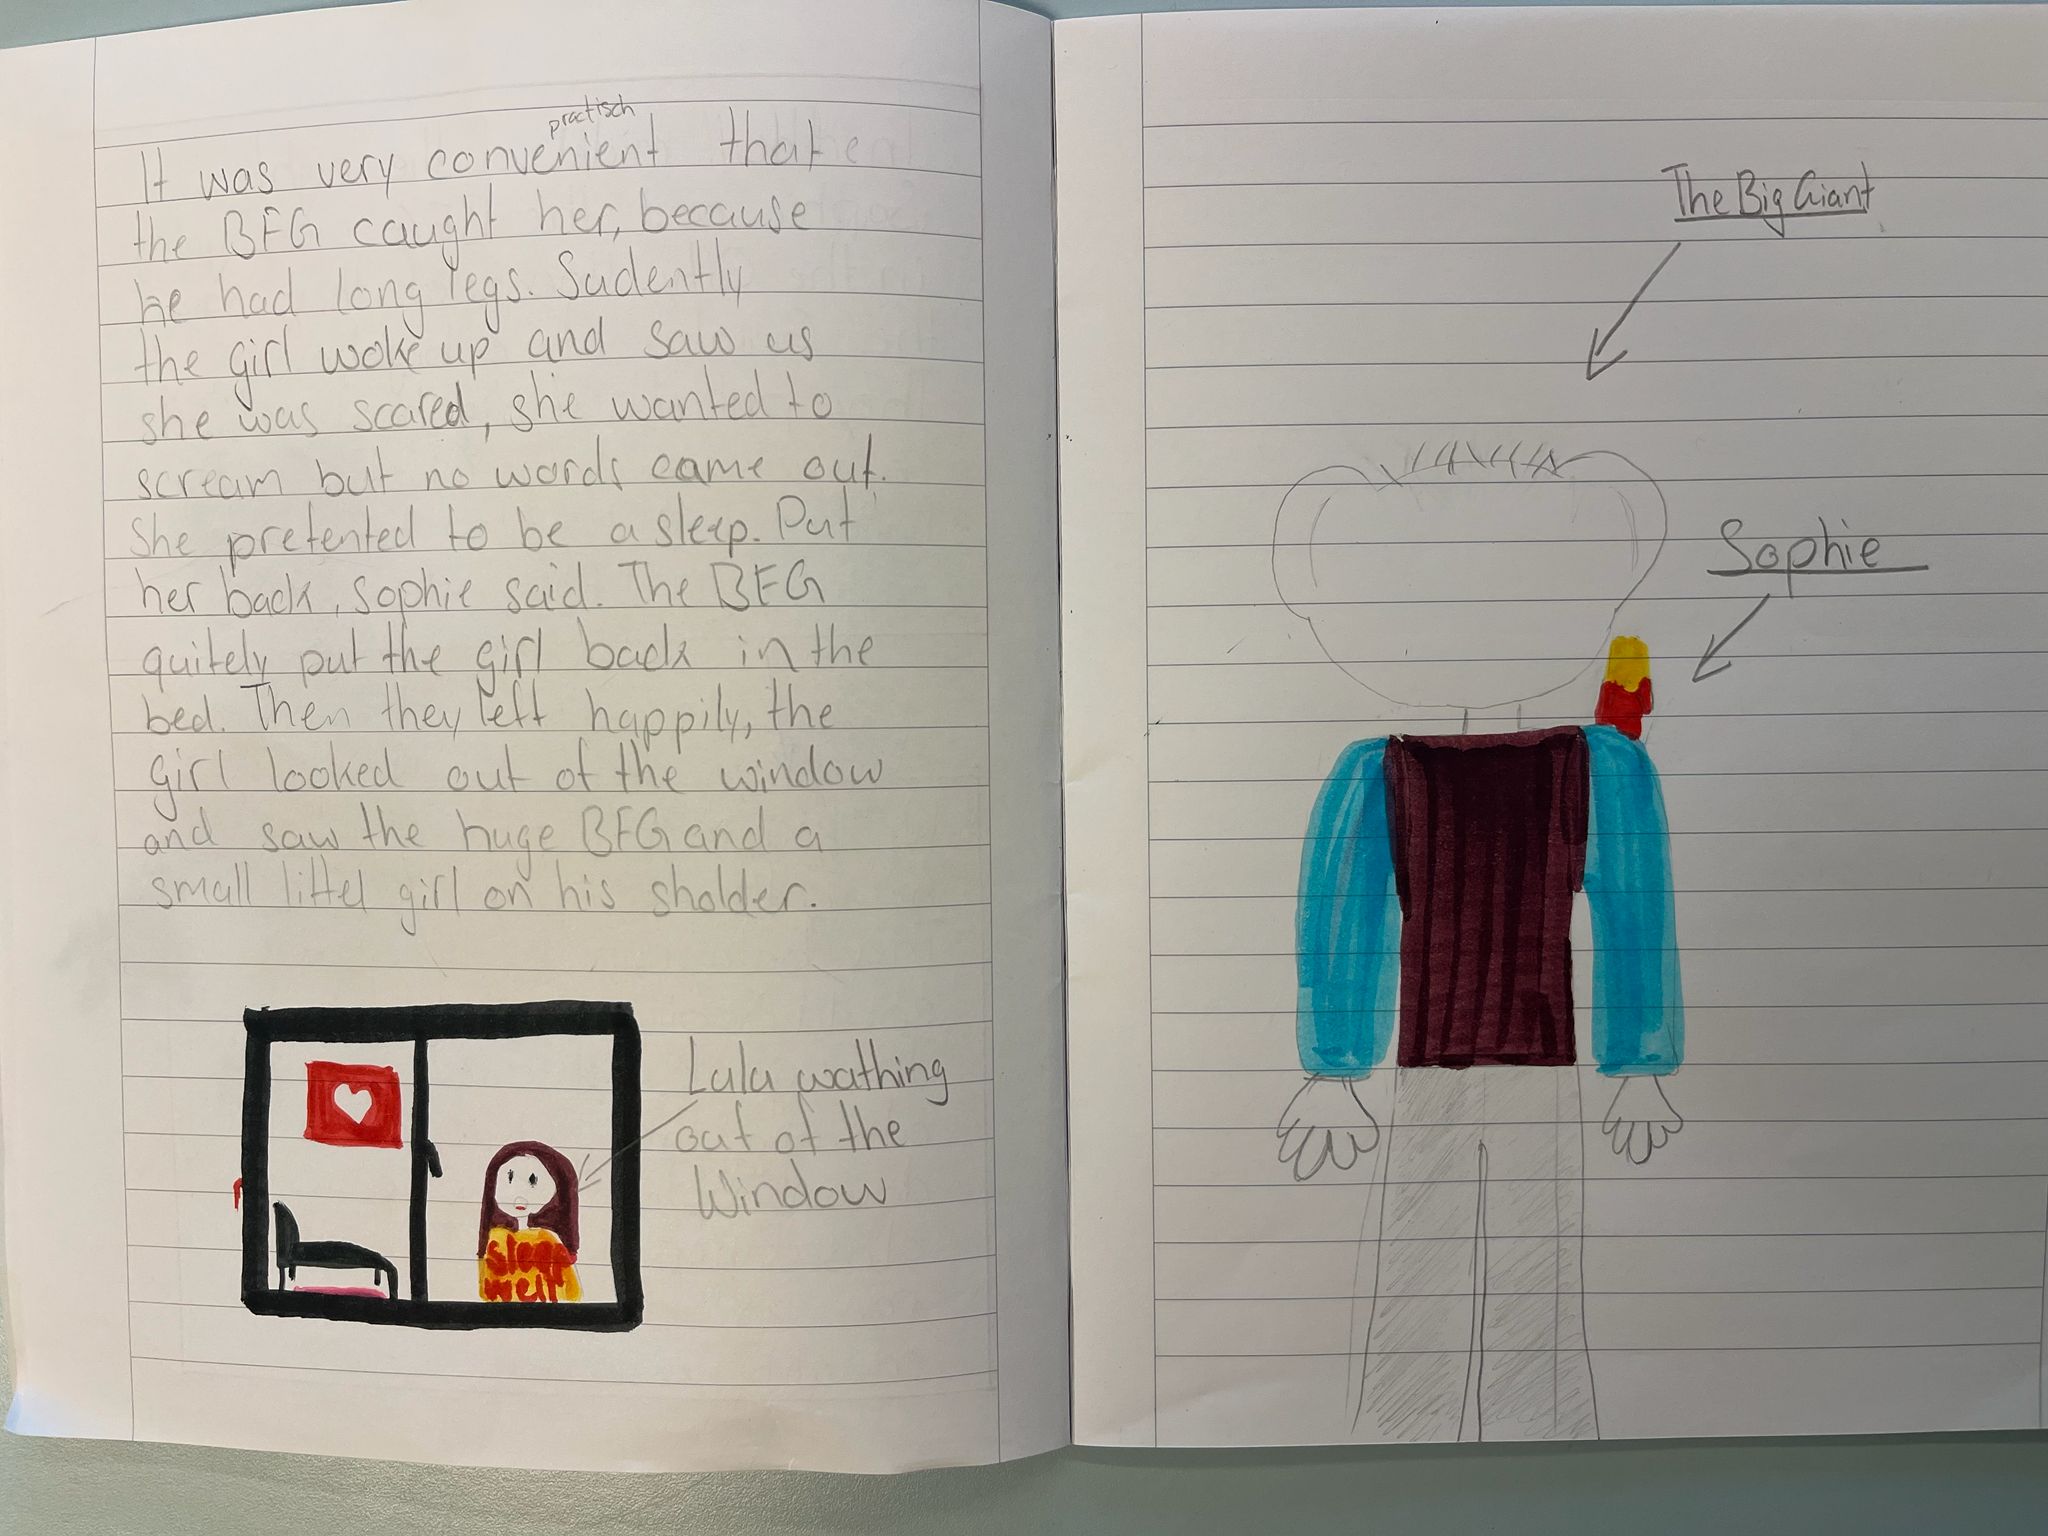 practisch
It was very convenient that
the BFG caught her, because
he had long legs. Sudently
the girl woke up and saw us
she was scared, she wanted to
scream but no words came out.
She pretented to be a sleep. Put
her back, Sophie said. The BFG
quitely put the girl back in the
bed. Then they left happily, the
girl looked out of the window
and saw the huge BFG and a
small littel girl on his sholder.
Lulu wathing
out of the
Window
sleep
well
The Big Giant
Sophie